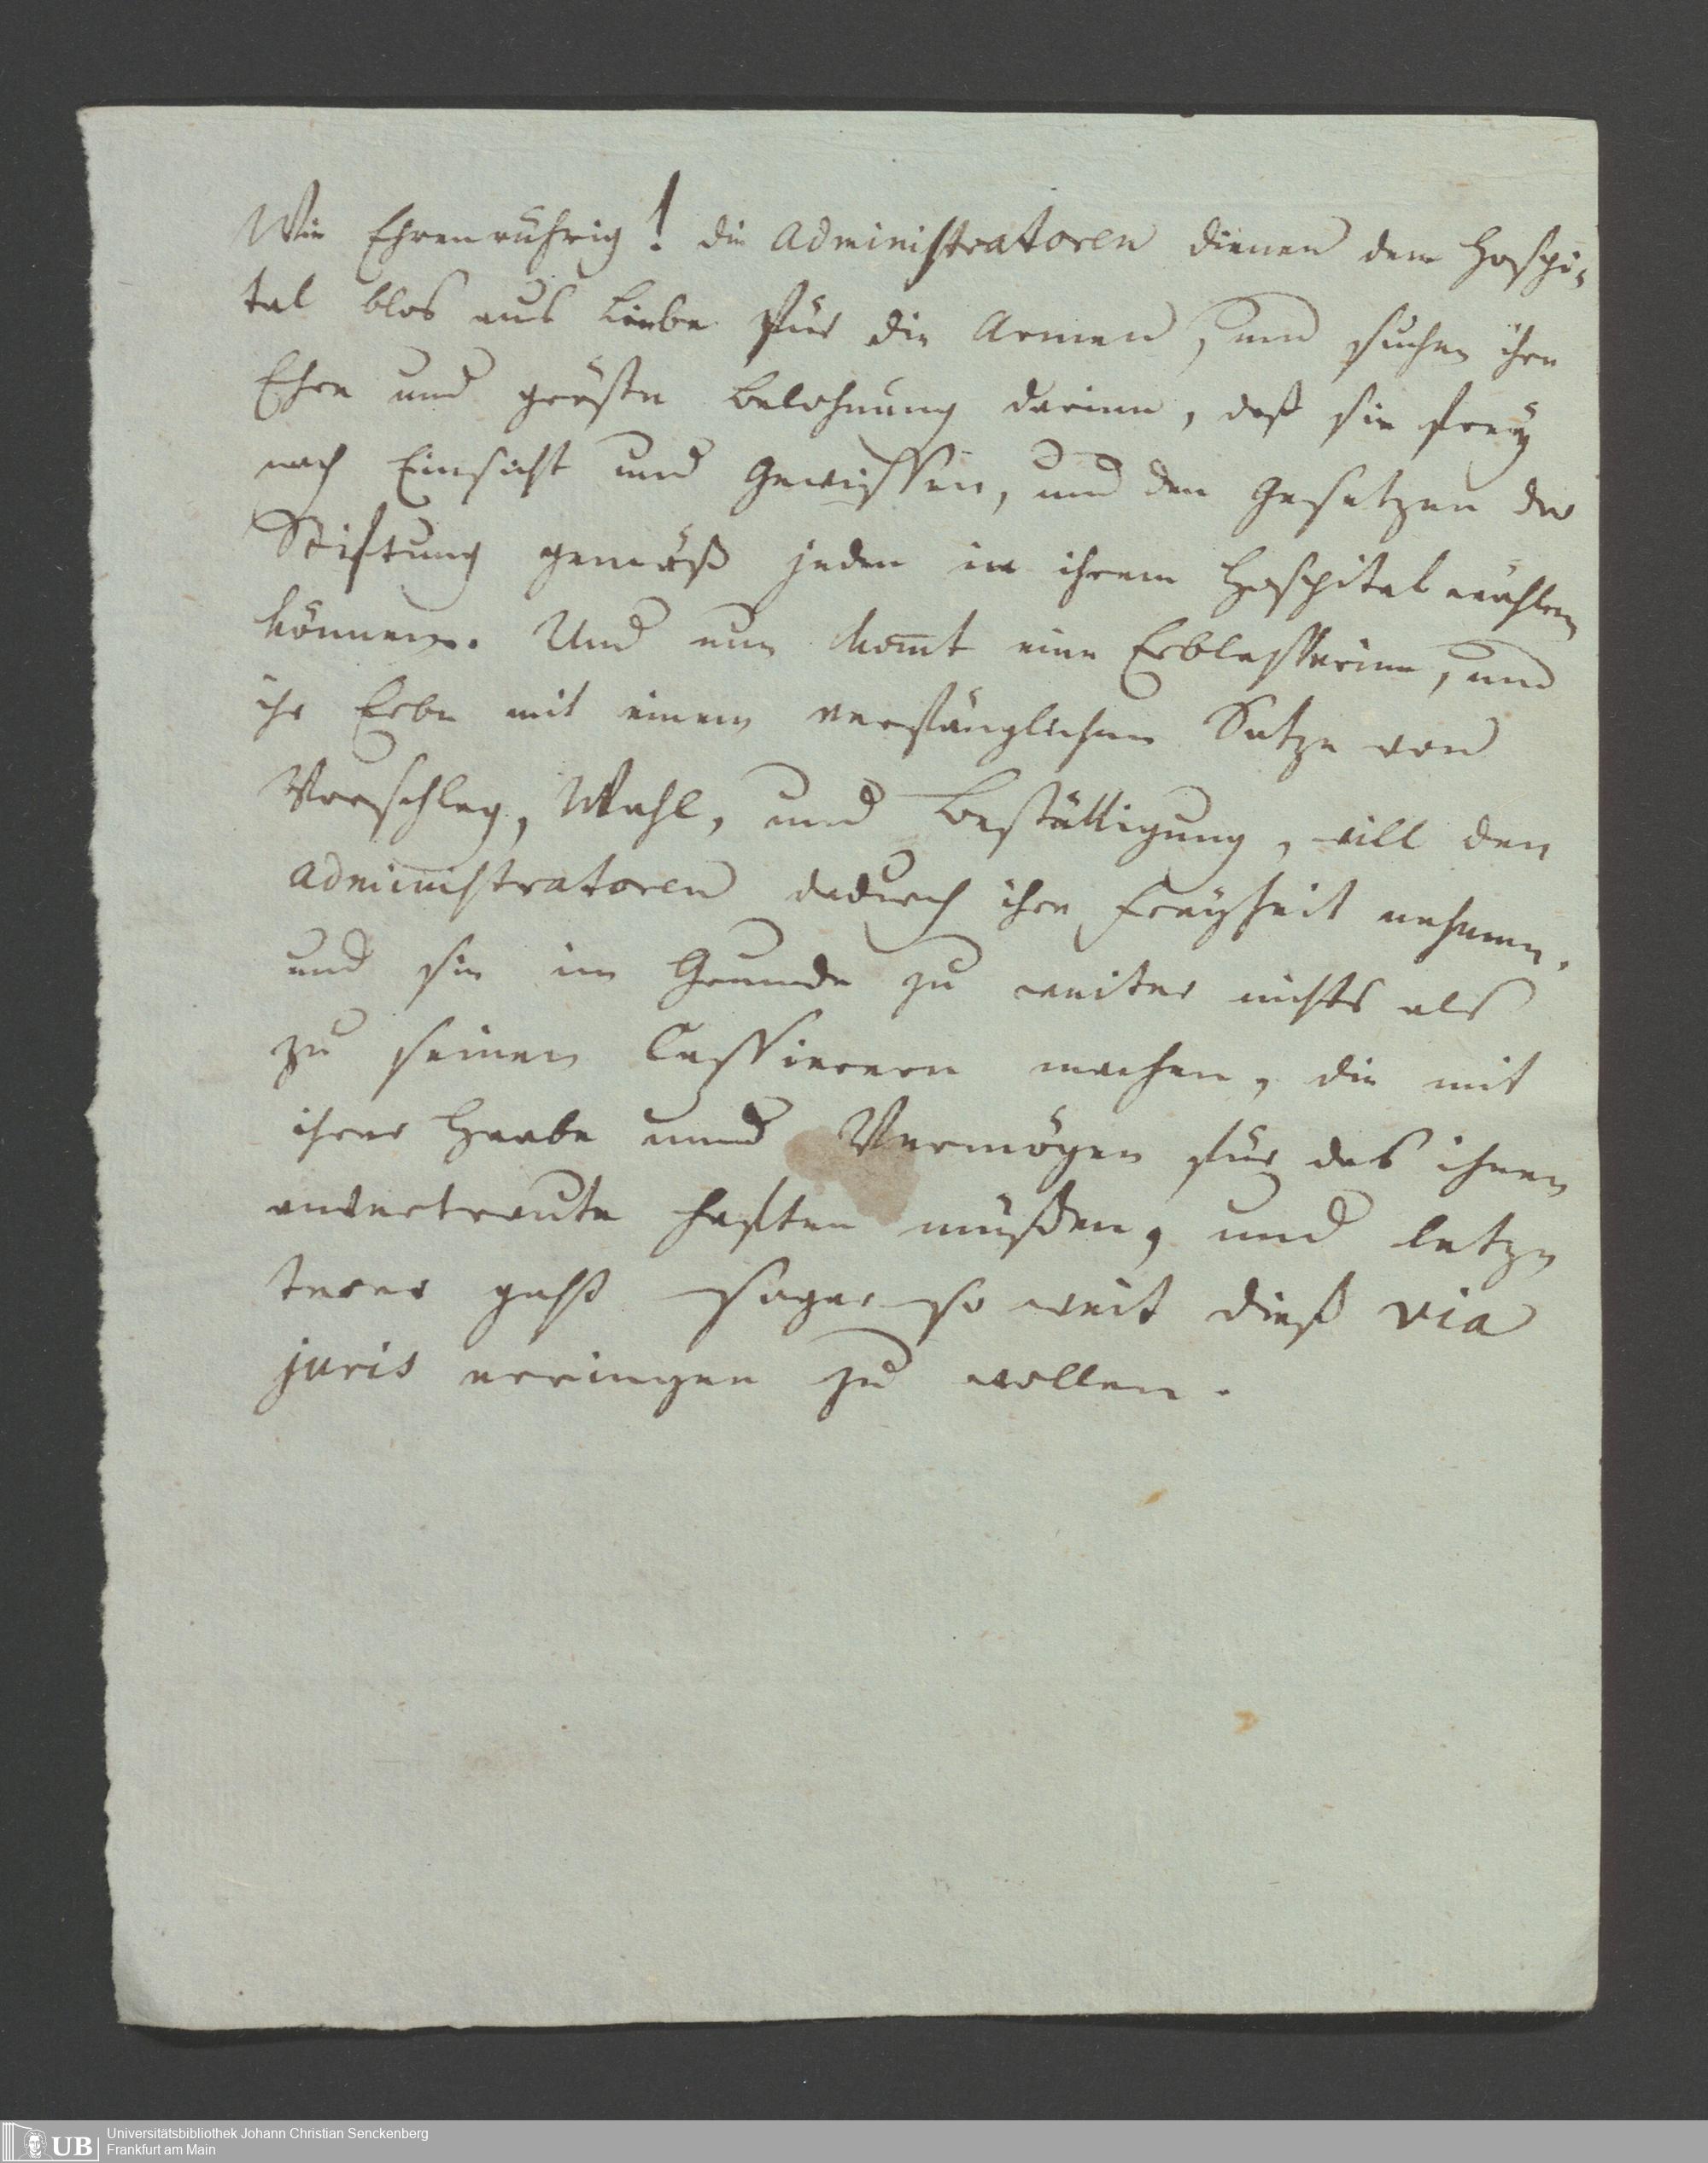 Wie Ehrenrührig! die Administratoren dienen dem Hospi-
tal blos aus Liebe für die Armen, und suchen ihre
Ehre und gröste Belohnung darinn, daß sie frey
nach Einsicht und Gewissen, und den Gesetzen der
Stiftung gemäß jeden in ihrem Hospital wählen
können. Und nun kom̅t eine Erblasserinn, und
ihr Erbe mit einem verfänglichen Satze von
Vorschlag, Wahl, und Bestättigung, will den
Administratoren dadurch ihre Freyheit nehmen,
und sie im Grunde zu weiter nichts als
zu seinen Cassierern machen, die mit
ihrer Haabe und Vermögen für das ihnen
anvertraute haften müßen, und letz
terer geht sogar so weit dieß via
juris erringen zu wollen.
UB
Universitätsbibliothek Johann Christian Senckenberg
Frankfurt am Main